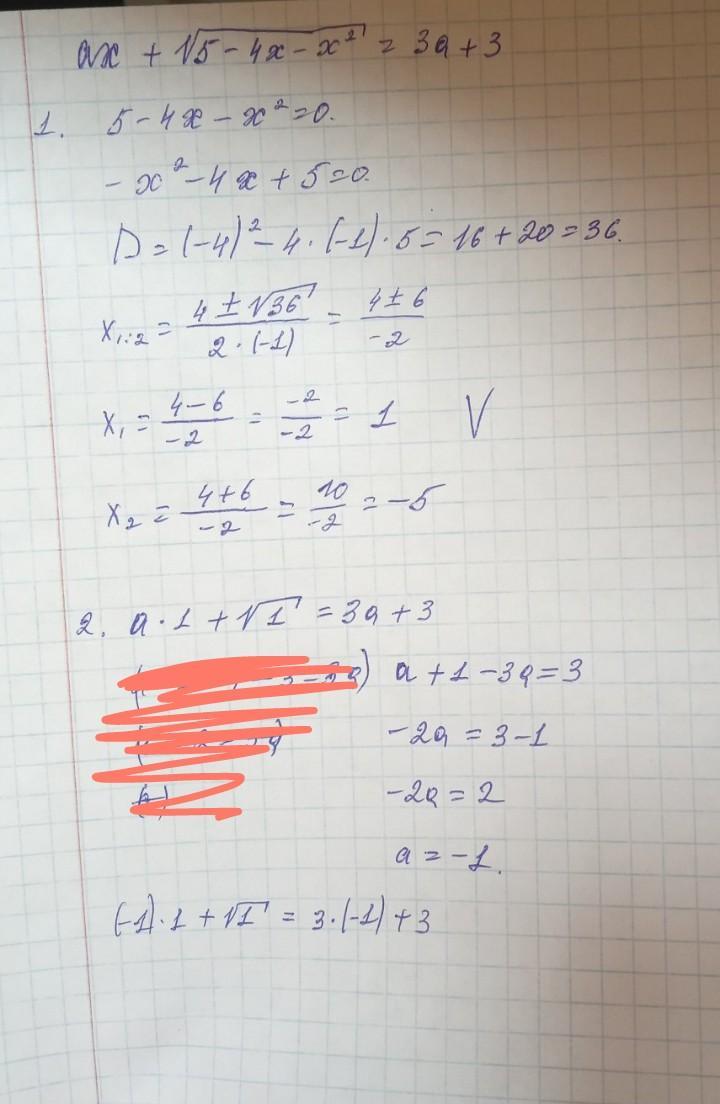 ax + √(5 - 4x - x²) = 3a + 3
1. 5 - 4x - x² = 0.
- x² - 4x + 5 = 0.
D = (-4)² - 4 · (-1) · 5 = 16 + 20 = 36.
x₁:₂ = (4 ± √36) / (2 · (-1)) = (4 ± 6) / -2
x₁ = (4 - 6) / -2 = -2 / -2 = 1 V
x₂ = (4 + 6) / -2 = 10 / -2 = -5
2. a · 1 + √1 = 3a + 3
a + 1 - 3a = 3
-2a = 3 - 1
-2a = 2
a = -1.
(-1) · 1 + √1 = 3 · (-1) + 3